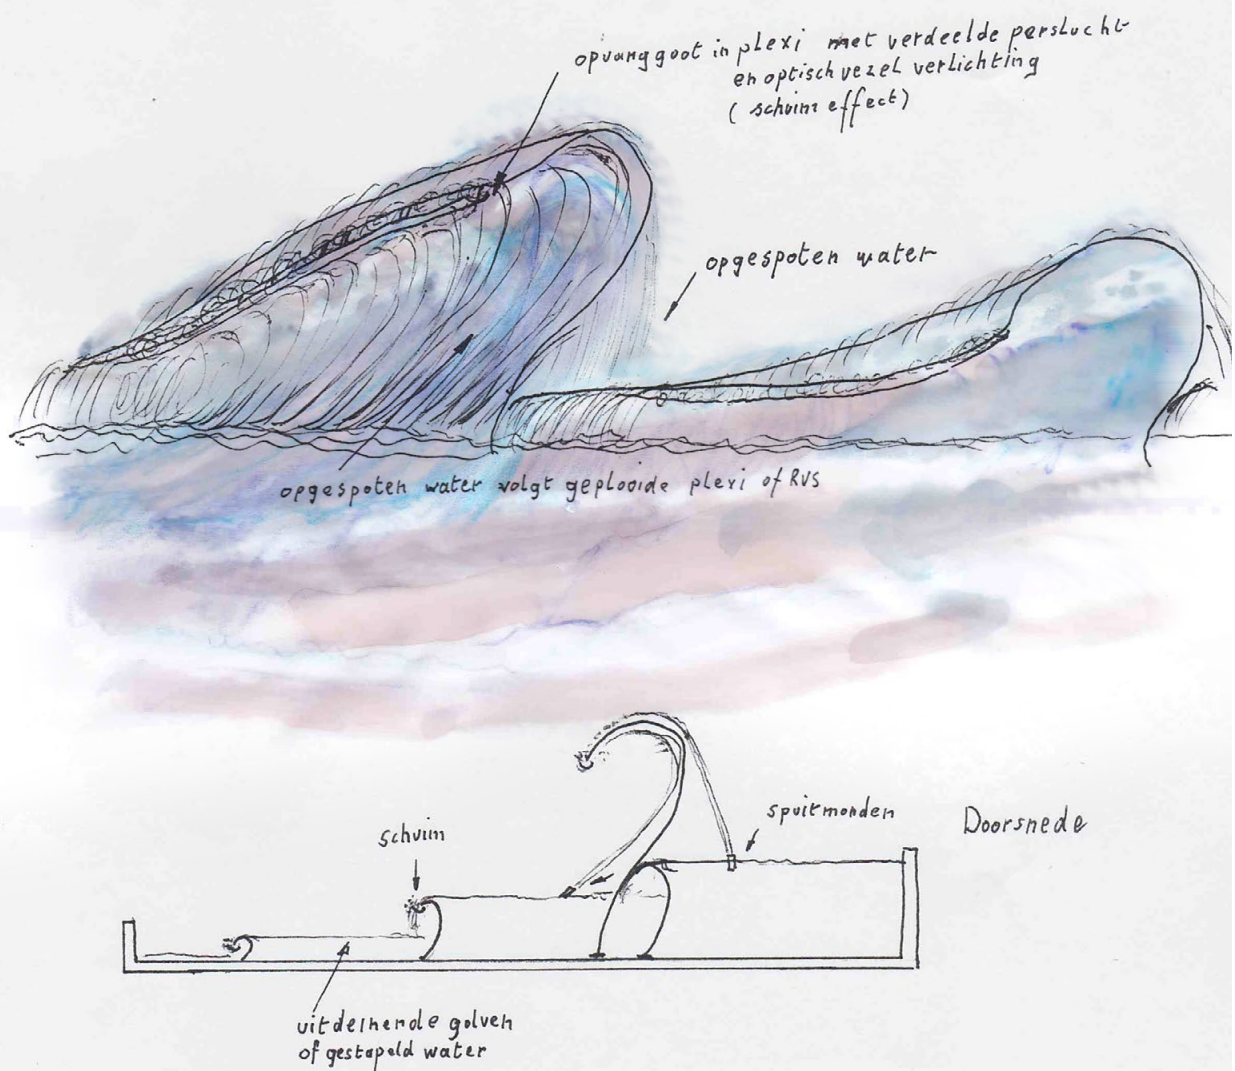 opvanggoot in plexi met verdeelde perslucht
en optisch vezel verlichting
( schuim effect)
opgespoten water
opgespoten water volgt geplooide plexi of RVS
spuitmonden
Doorsnede
schuim
uitdeinende golven
of gestapeld water